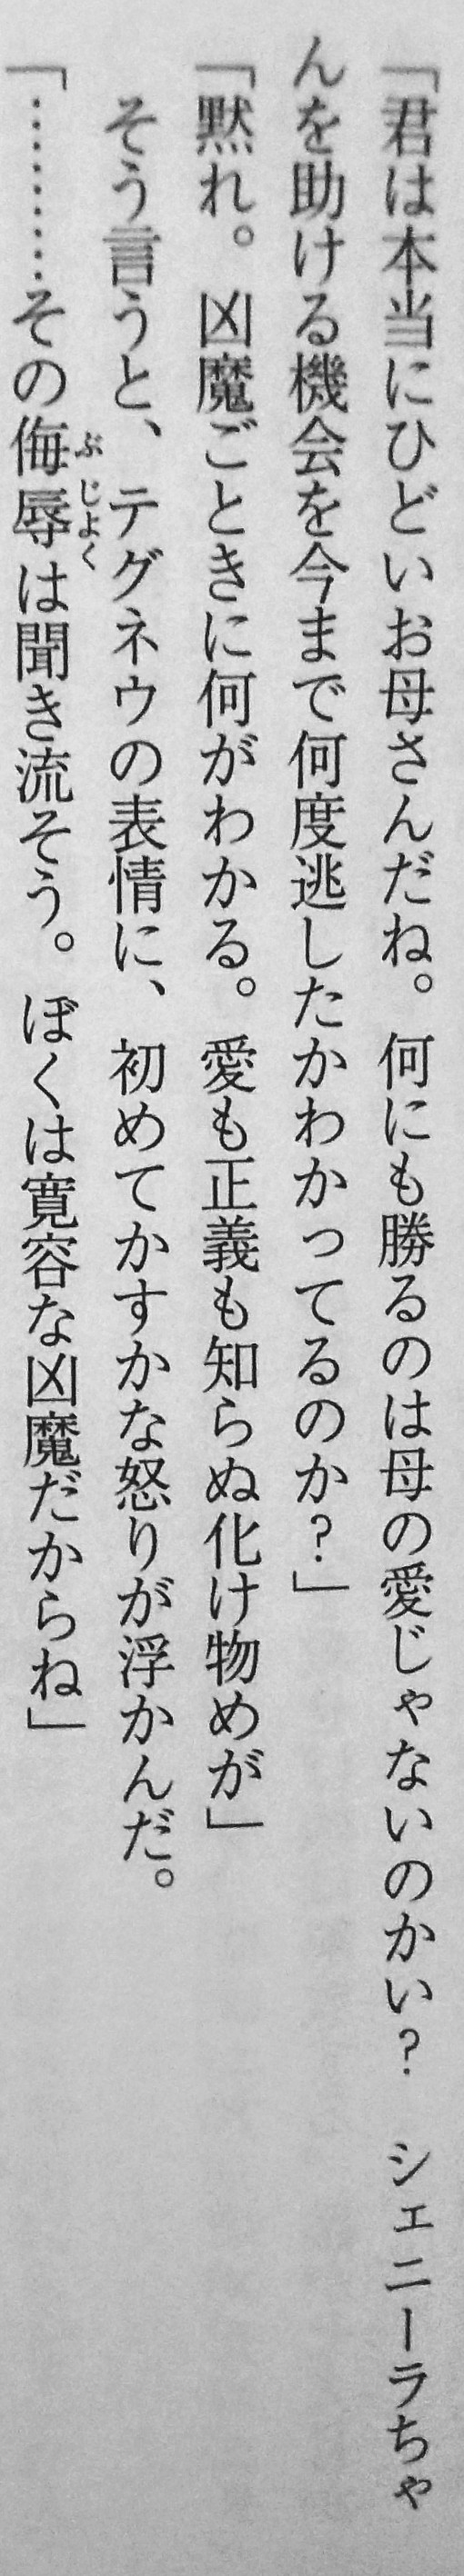 「君は本当にひどいお母さんだね。何にも勝るのは母の愛じゃないのかい？　シェニーラちゃ
んを助ける機会を今まで何度逃したかわかってるのか？」
「黙れ。凶魔ごときに何がわかる。愛も正義も知らぬ化け物めが」
　そう言うと、テグネウの表情に、初めてかすかな怒りが浮かんだ。
「………その侮辱は聞き流そう。ぼくは寛容な凶魔だからね」
ぶじょく